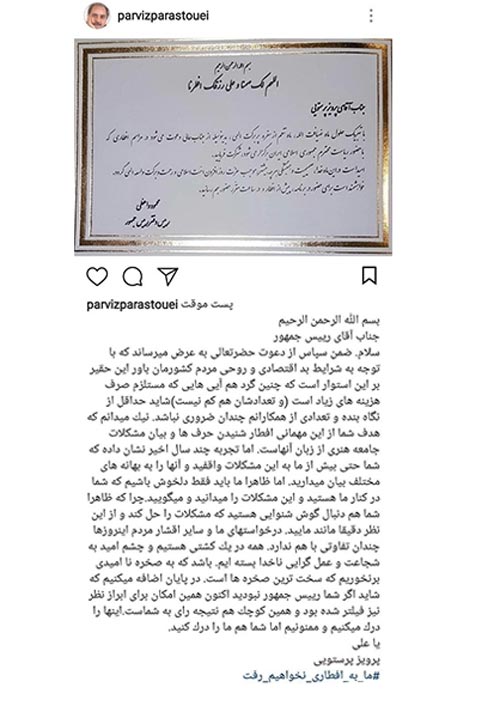 parvizparastouei
بسم الله الرحمن الرحیم
اللهم لک صمنا و علی رزقک افطرنا
جناب آقای پرویز پرستویی
با تبریک حلول ماه ضیافت الله، ماه تنعم از سفره پر برکت الهی، بدینوسیله از جناب‌عالی دعوت می‌شود در مراسم افطاری که
با حضور ریاست محترم جمهوری اسلامی ایران برگزار می‌شود، شرکت فرمایید.
خواهشمند است برای حضور در برنامه، پیش از افطار و در ساعت مقرر حضور بهم رسانید.
محمود واعظی
رییس دفتر رییس جمهور
parvizparastouei پست موقت
بسم الله الرحمن الرحیم
جناب آقای رییس جمهور
سلام. ضمن سپاس از دعوت حضرتعالی به عرض میرساند که با
توجه به شرایط بد اقتصادی و روحی مردم کشورمان باور این حقیر
بر این استوار است که چنین گرد هم آیی هایی که مستلزم صرف
هزینه های زیاد است (و تعدادشان هم کم نیست)شاید حداقل از
نگاه بنده و تعدادی از همکارانم چندان ضروری نباشد. نیك میدانم که
هدف شما از این مهمانی افطار شنیدن حرف ها و بیان مشکلات
جامعه هنری از زبان آنهاست. اما تجربه چند سال اخیر نشان داده که
شما حتی بیش از ما به این مشکلات واقفید و آنها را به بهانه های
مختلف بیان میدارید. اما ظاهرا ما باید فقط دلخوش باشیم که شما
در کنار ما هستید و این مشکلات را میدانید و میگویید.چرا که ظاهرا
شما هم دنبال گوش شنوایی هستید که مشکلات را حل کند و از این
نظر دقیقا مانند مایید. درخواستهای ما و سایر اقشار مردم اینروزها
چندان تفاوتی با هم ندارد. همه در یك کشتی هستیم و چشم امید به
شجاعت و عمل گرایی ناخدا بسته ایم. باشد که به صخره نا امیدی
برنخوریم که سخت ترین صخره ها است. در پایان اضافه میکنیم که
شاید اگر شما رییس جمهور نبودید اکنون همین امکان برای ابراز نظر
نیز فیلتر شده بود و همین کوچك هم نتیجه رای به شماست.اینها را
درك میکنیم و ممنونیم اما شما هم ما را درك کنید.
یا علی
پرویز پرستویی
#ما_به_افطاری_نخواهیم_رفت